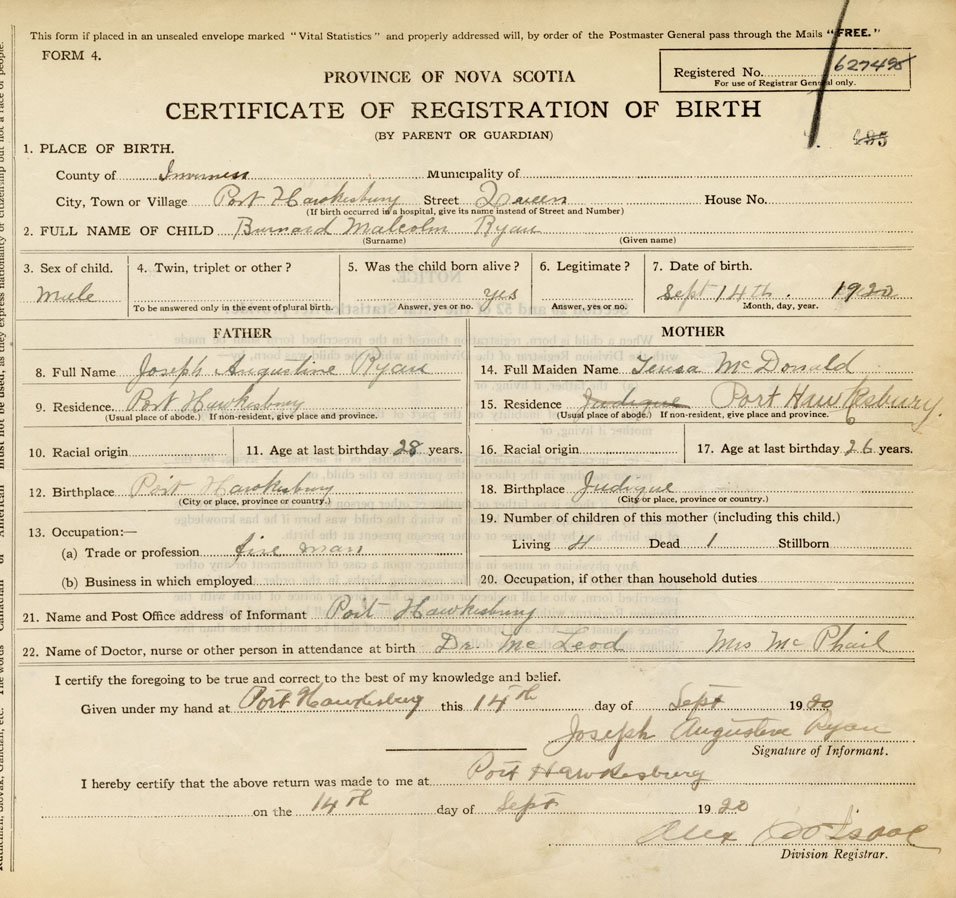 This form if placed in an unsealed envelope marked "Vital Statistics" and properly addressed will, by order of the Postmaster General pass through the Mails "FREE."
FORM 4.
Registered No. 627495
For use of Registrar General only.
PROVINCE OF NOVA SCOTIA
CERTIFICATE OF REGISTRATION OF BIRTH
(BY PARENT OR GUARDIAN)
1. PLACE OF BIRTH.
County of Inverness Municipality of
City, Town or Village Port Hawkesbury Street Queen House No.
(If birth occurred in a hospital, give its name instead of Street and Number)
2. FULL NAME OF CHILD Burnard Malcolm Ryan
(Surname) (Given name)
3. Sex of child. 4. Twin, triplet or other? 5. Was the child born alive? 6. Legitimate? 7. Date of birth.
Male yes Sept 14th. 1920
To be answered only in the event of plural birth. Answer, yes or no. Answer, yes or no. Month, day, year.
FATHER
8. Full Name Joseph Augustine Ryan
9. Residence Port Hawkesbury
(Usual place of abode.) If non-resident, give place and province.
10. Racial origin 11. Age at last birthday 28 years.
12. Birthplace Port Hawkesbury
(City or place, province or country.)
13. Occupation:—
(a) Trade or profession fire man
(b) Business in which employed
MOTHER
14. Full Maiden Name Teresa McDonald
15. Residence Judique Port Hawkesbury.
(Usual place of abode.) If non-resident, give place and province.
16. Racial origin 17. Age at last birthday 26 years.
18. Birthplace Judique
(City or place, province or country.)
19. Number of children of this mother (including this child.)
Living 4 Dead 1 Stillborn
20. Occupation, if other than household duties
21. Name and Post Office address of Informant Port Hawkesbury
22. Name of Doctor, nurse or other person in attendance at birth Dr. McLeod Mrs McPhail
I certify the foregoing to be true and correct to the best of my knowledge and belief.
Given under my hand at Port Hawkesbury this 14th day of Sept 1920
Joseph Augustine Ryan
Signature of Informant.
I hereby certify that the above return was made to me at Port Hawkesbury
on the 14th day of Sept 1920
Alex
Division Registrar.